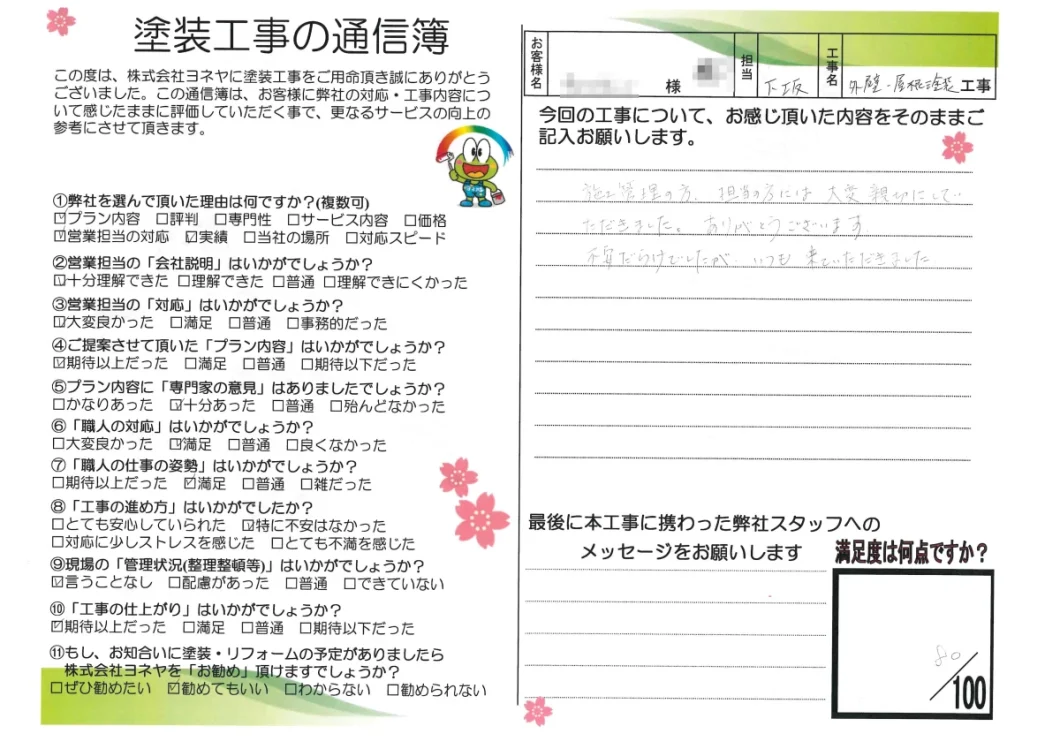 塗装工事の通信簿
この度は、株式会社ヨネヤに塗装工事をご用命頂き誠にありがとう
ございました。この通信簿は、お客様に弊社の対応・工事内容につ
いて感じたままに評価していただく事で、更なるサービスの向上の
参考にさせて頂きます。
①弊社を選んで頂いた理由は何ですか?(複数可)
☑プラン内容 □評判 □専門性 □サービス内容 □価格
☑営業担当の対応 ☑実績 □当社の場所 □対応スピード
②営業担当の「会社説明」はいかがでしょうか?
☑十分理解できた □理解できた □普通 □理解できにくかった
③営業担当の「対応」はいかがでしょうか?
☑大変良かった □満足 □普通 □事務的だった
④ご提案させて頂いた「プラン内容」はいかがでしょうか?
☑期待以上だった □満足 □普通 □期待以下だった
⑤プラン内容に「専門家の意見」はありましたでしょうか?
□かなりあった ☑十分あった □普通 □殆んどなかった
⑥「職人の対応」はいかがでしょうか?
□大変良かった ☑満足 □普通 □良くなかった
⑦「職人の仕事の姿勢」はいかがでしょうか?
□期待以上だった ☑満足 □普通 □雑だった
⑧「工事の進め方」はいかがでしたか?
□とても安心していられた ☑特に不安はなかった
□対応に少しストレスを感じた □とても不満を感じた
⑨現場の「管理状況(整理整頓等)」はいかがでしょうか?
☑言うことなし □配慮があった □普通 □できていない
⑩「工事の仕上がり」はいかがでしょうか?
☑期待以上だった □満足 □普通 □期待以下だった
⑪もし、お知合いに塗装・リフォームの予定がありましたら
株式会社ヨネヤを「お勧め」頂けますでしょうか?
□ぜひ勧めたい ☑勧めてもいい □わからない □勧められない
お客様名 様 担当 下坂 工事名 外壁・屋根塗装工事
今回の工事について、お感じ頂いた内容をそのままご
記入お願いします。
施工管理の方、担当の方には大変親切にしてい
ただきました。ありがとうございます
不安だらけでしたが、いつも来ていただきました
最後に本工事に携わった弊社スタッフへの
メッセージをお願いします
満足度は何点ですか?
80/100